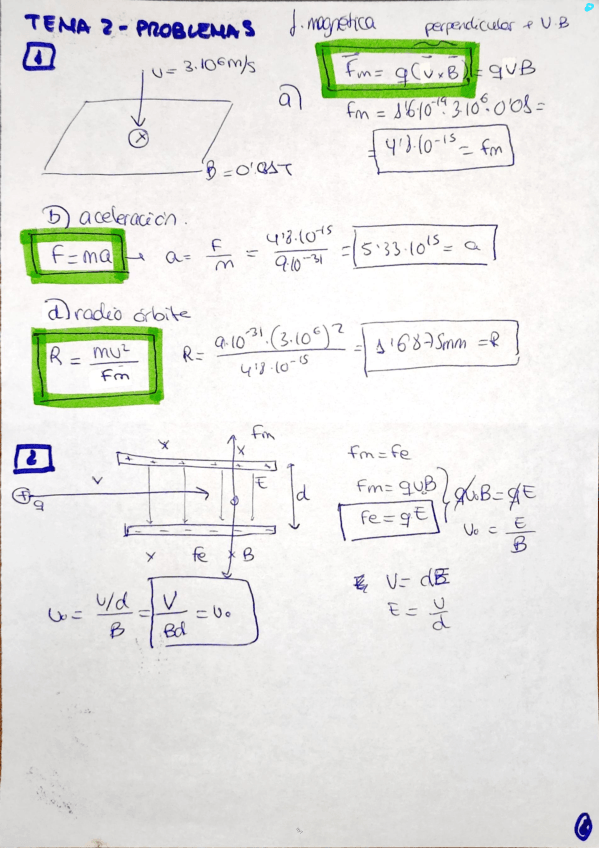 TEMA 2 - PROBLEMAS
f. magnética perpendicular a v.B
1
v = 3·10^6 m/s
B = 0'01T
a)
Fm = q(v×B) = qvB
fm = 1'6·10^-19·3·10^6·0'01 =
= 4'8·10^-15 = fm
b) aceleración.
F = ma → a = F/m = 4'8·10^-15 / 9·10^-31 = 5'33·10^15 = a
d) radio órbita
R = mv²/Fm R = 9·10^-31·(3·10^6)² / 4'8·10^-15 = 1'6875mm = R
2
x x Fm
+ q v E d
x Fe x B
fm = fe
Fm = qv₀B
Fe = qE
qv₀B = qE
v₀ = E/B
V = dE
E = V/d
v₀ = V/d / B = V/Bd = v₀